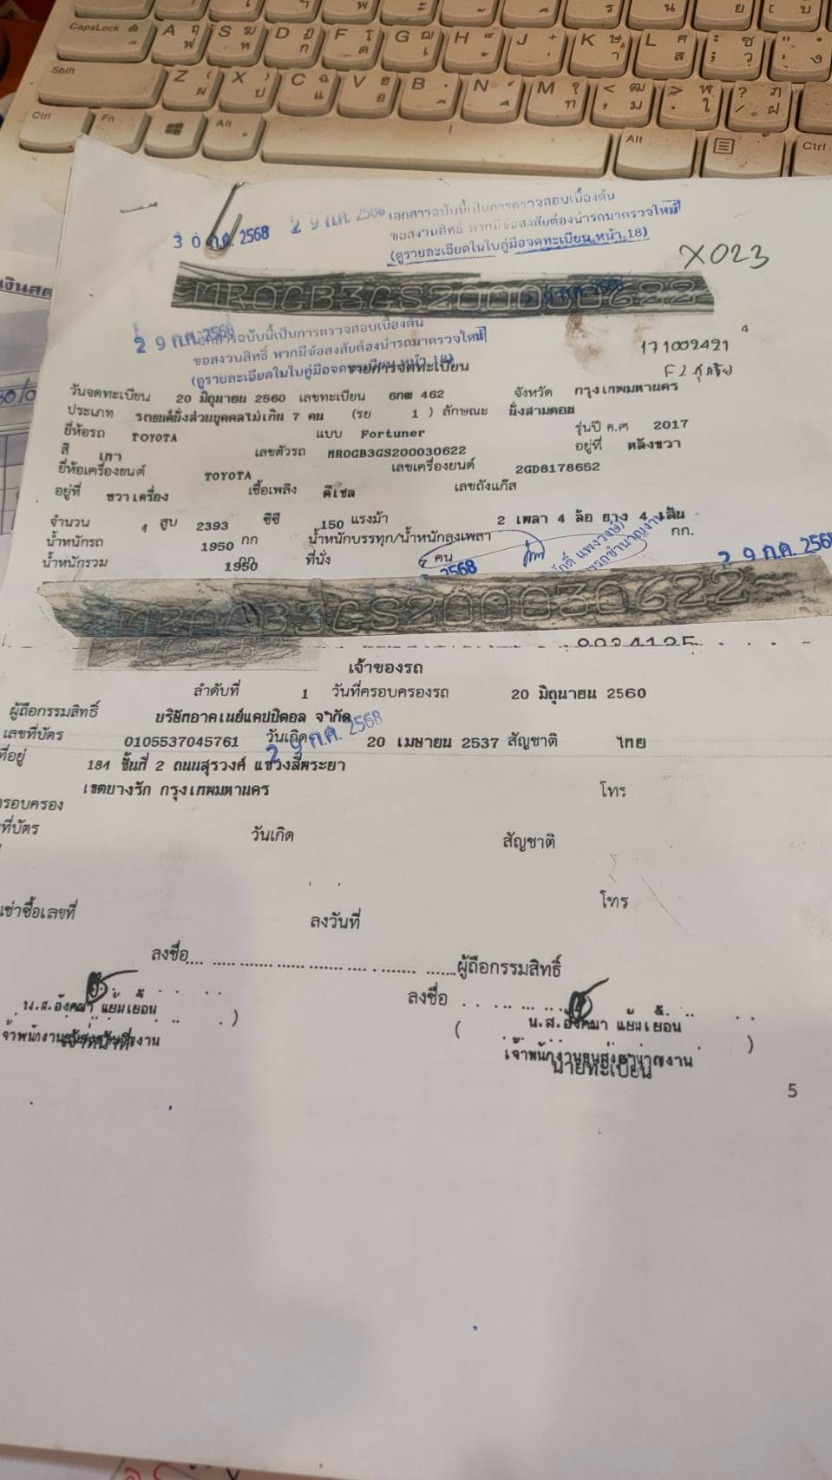 CapsLock A S D F G H J K L
Shift Z X C V B N M
Ctrl Fn Alt Alt Ctrl
30 ก.ค. 2568 29 ก.ค. 256 เอกสารฉบับนี้เป็นการตรวจสอบเบื้องต้น
ขอสงวนสิทธิ์ หากมีข้อสงสัยต้องนำรถมาตรวจใหม่
(ดูรายละเอียดในใบคู่มือจดทะเบียน,หน้า,18)
X023
MR0GB3GS200030622
29 ก.ค. 2568 เอกสารฉบับนี้เป็นการตรวจสอบเบื้องต้น
ขอสงวนสิทธิ์ หากมีข้อสงสัยต้องนำรถมาตรวจใหม่
171002421
(ดูรายละเอียดในใบคู่มือจดทะเบียน,หน้า,18)
รายการจดทะเบียน
วันจดทะเบียน 20 มิถุนายน 2560 เลขทะเบียน 6กพ 462 จังหวัด กรุงเทพมหานคร
ประเภท รถยนต์นั่งส่วนบุคคลไม่เกิน 7 คน (รย 1 ) ลักษณะ นั่งสามตอน
ยี่ห้อรถ TOYOTA แบบ Fortuner รุ่นปี ค.ศ 2017
สี เทา เลขตัวรถ MR0GB3GS200030622 อยู่ที่ หลังขวา
ยี่ห้อเครื่องยนต์ TOYOTA เลขเครื่องยนต์ 2GD8178652
อยู่ที่ ขวาเครื่อง เชื้อเพลิง ดีเซล เลขถังแก๊ส
จำนวน 4 สูบ 2393 ซีซี 150 แรงม้า 2 เพลา 4 ล้อ ยาง 4 เส้น
น้ำหนักรถ 1950 กก น้ำหนักบรรทุก/น้ำหนักลงเพลา กก.
น้ำหนักรวม 1950 กก ที่นั่ง 7 คน
2568 29 ก.ค. 256
MR0GB3GS200030622
เจ้าของรถ
ลำดับที่ 1 วันที่ครอบครองรถ 20 มิถุนายน 2560
ผู้ถือกรรมสิทธิ์ บริษัทอาคเนย์แคปปิตอล จำกัด
เลขที่บัตร 0105537045761 วันเกิด 20 เมษายน 2537 สัญชาติ ไทย
29 ก.ค. 2568
ที่อยู่ 184 ชั้นที่ 2 ถนนสุรวงศ์ แขวงสี่พระยา
เขตบางรัก กรุงเทพมหานคร โทร
รอบครอง
ที่บัตร วันเกิด สัญชาติ
โทร
เช่าซื้อเลขที่ ลงวันที่
ลงชื่อ ผู้ถือกรรมสิทธิ์
ลงชื่อ
น.ส.อังคณา แย้มเยื้อน )
( น.ส.อังคณา แย้มเยื้อน )
นายทะเบียน
5